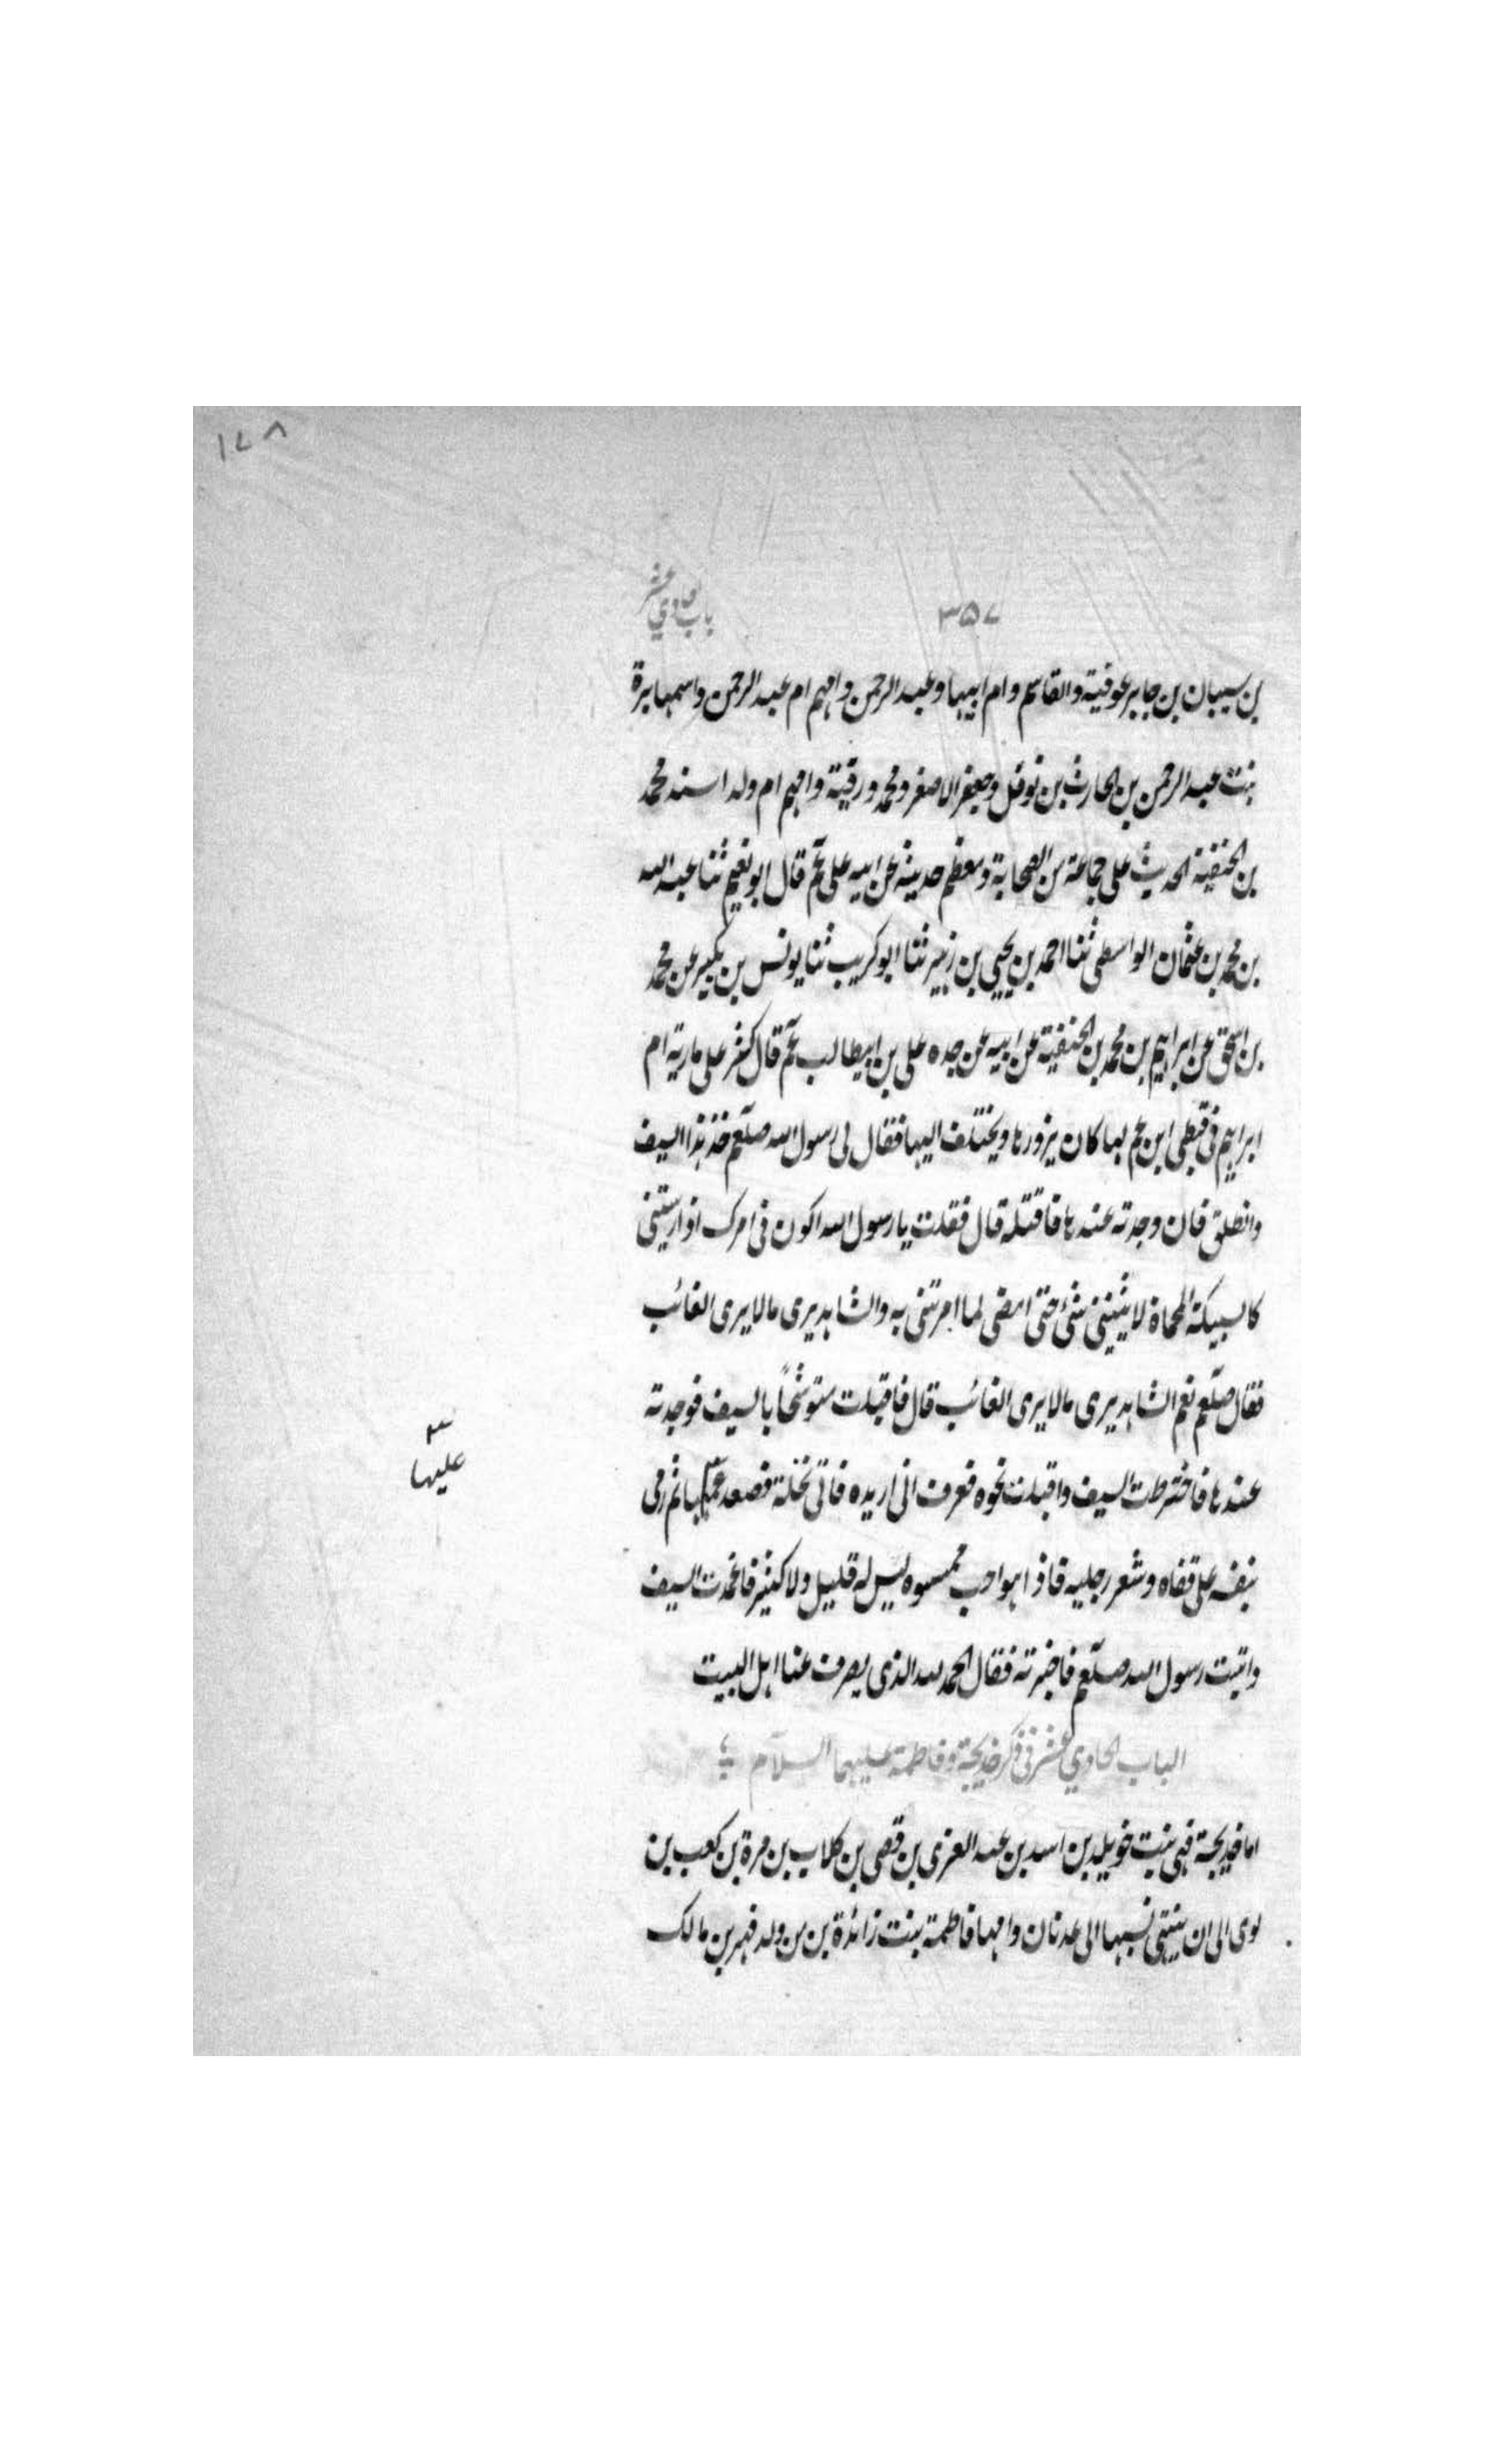 ١٧٨
باب حادي عشر
٣٥٧
بن سيبان بن جابر عوفية والقاسم وام ابيها وعبد الرحمن وامهم ام عبد الرحمن واسمها برة
بنت عبد الرحمن بن الحارث بن نوفل وجعفر الاصغر ومحمد ورقية وامهم ام ولد اسند محمد
بن الحنفية الحديث على جماعة من الصحابة ومعظم حديثه عن ابيه على عم قال ابو نعيم ثنا عبد الله
بن محمد بن عثمان الواسطى ثنا احمد بن يحيى بن زهير ثنا ابو كريب ثنا يونس بن بكير عن محمد
بن اسحق عن ابراهيم بن محمد بن الحنفية عن ابيه عن جده على بن ابيطالب عم قال كثر على مارية ام
ابراهيم فى قبطى ابن عم لها كان يزورها ويختلف اليها فقال لى رسول الله صلعم خذ هذا السيف
وانطلق فان وجدته عندها فاقتله قال فقلت يا رسول الله اكون فى امرك اذ ارسلتنى
كالسبيكة المحماة لا يثنينى شئ حتى امضى لما امرتنى به والشاهد يرى مالا يرى الغائب
فقال صلعم نعم الشاهد يرى مالا يرى الغائب قال فاقبلت متوشحاً بالسيف فوجدته
عندها فاخترطت السيف واقبلت نحوه فعرف انى اريده فاتى نخلة فصعد ثم رمى
عليها
بنفسه على قفاه وشغر رجليه فاذا هو اجب ممسوه ليس له قليل ولا كثير فاغمدت السيف
واتيت رسول الله صلعم فاخبرته فقال الحمد لله الذى يصرف عنا اهل البيت
الباب الحادي عشر فى ذكر خديجة وفاطمة عليهما السلام
اما خديجة فهى بنت خويلد بن اسد بن عبد العزى بن قصى بن كلاب بن مرة بن كعب بن
لوى الى ان ينتهى نسبها الى عدنان وامها فاطمة بنت زائدة بن من ولد فهر بن مالك